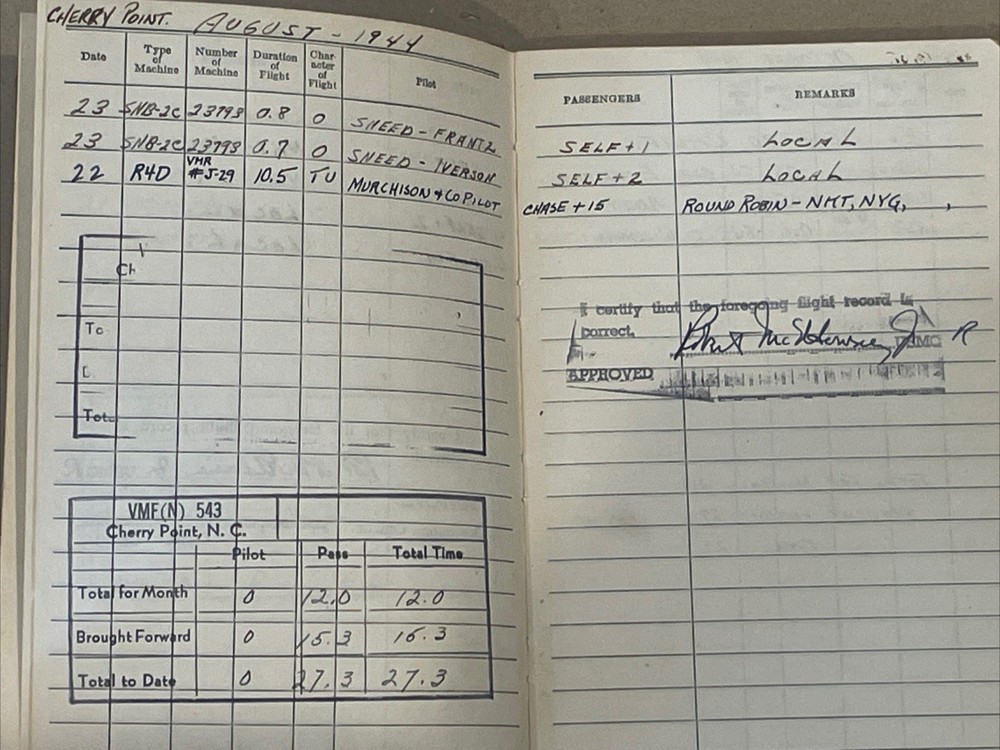 CHERRY POINT. AUGUST - 1944
Date Type of Machine Number of Machine Duration of Flight Char-acter of Flight Pilot PASSENGERS REMARKS
23 SNB-2C 23793 0.8 O SNEED - FRANTZ SELF + 1 LOCAL
23 SNB-2C 23793 0.7 O SNEED - IVERSON SELF + 2 LOCAL
22 R4D VMR #J-29 10.5 TU MURCHISON + CoPILOT CHASE + 15 ROUND ROBIN - NKT, NYG, ,
I certify that the foregoing flight record is
correct.
USMC R
APPROVED
Ch
To
Tot
VMF(N) 543
Cherry Point, N. C.
Pilot Pass Total Time
Total for Month 0 12.0 12.0
Brought Forward 0 15.3 15.3
Total to Date 0 27.3 27.3